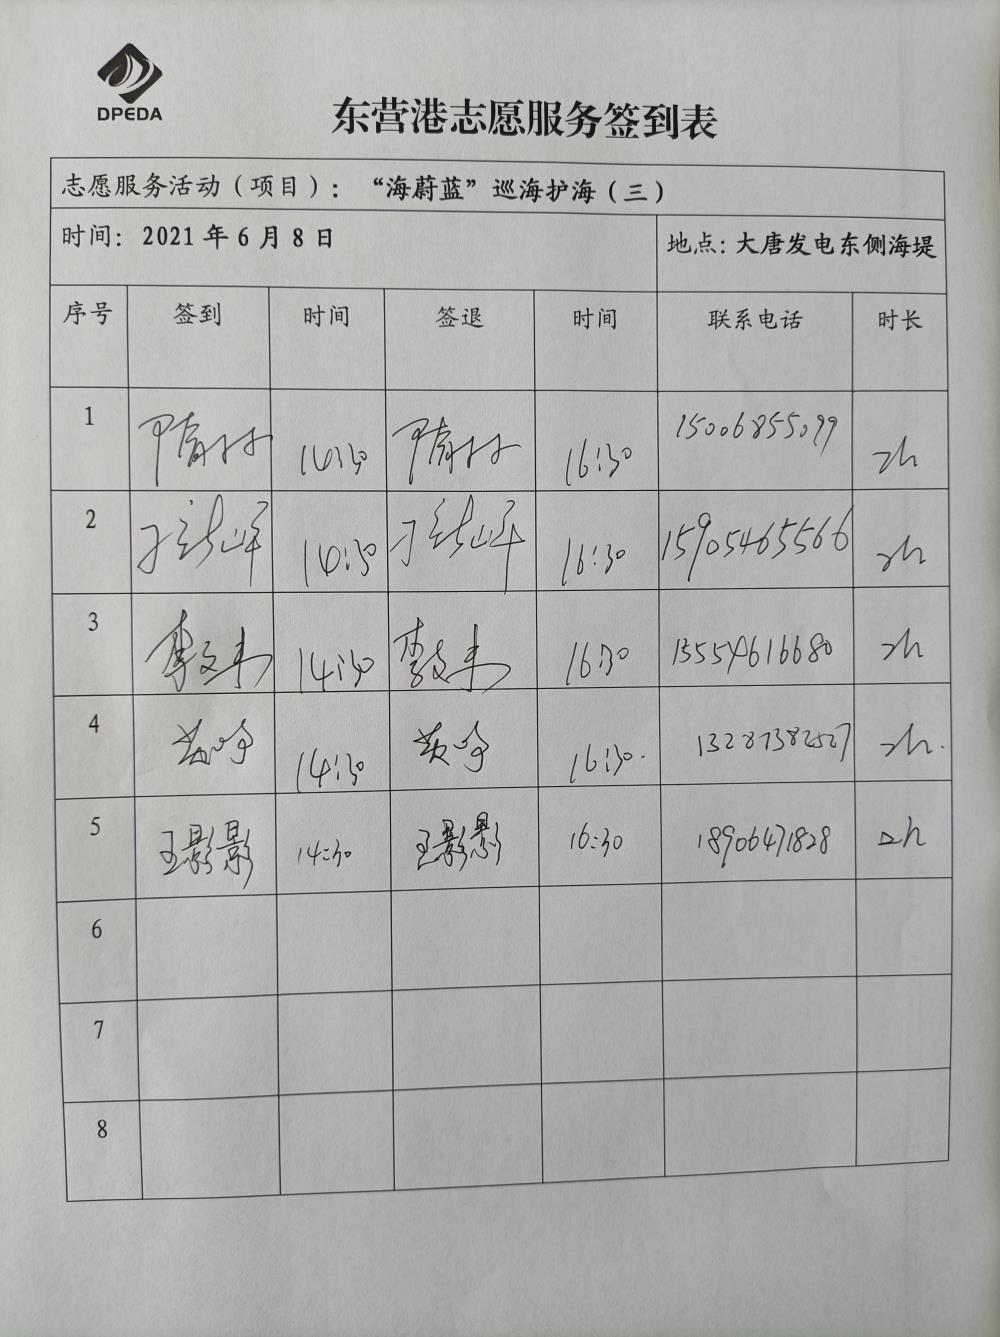 DPEDA
东营港志愿服务签到表
志愿服务活动（项目）：“海蔚蓝”巡海护海（三）
时间：2021年6月8日 地点：大唐发电东侧海堤
序号 签到 时间 签退 时间 联系电话 时长
1 14:30 16:30 15006855099 2h
2 14:30 16:30 15905465566 2h
3 李文韦 14:30 李文韦 16:30 15554616680 2h
4 黄峥 14:30 黄峥 16:30. 13287382527 2h.
5 王影影 14:30 王影影 16:30 18906471828 2h
6
7
8